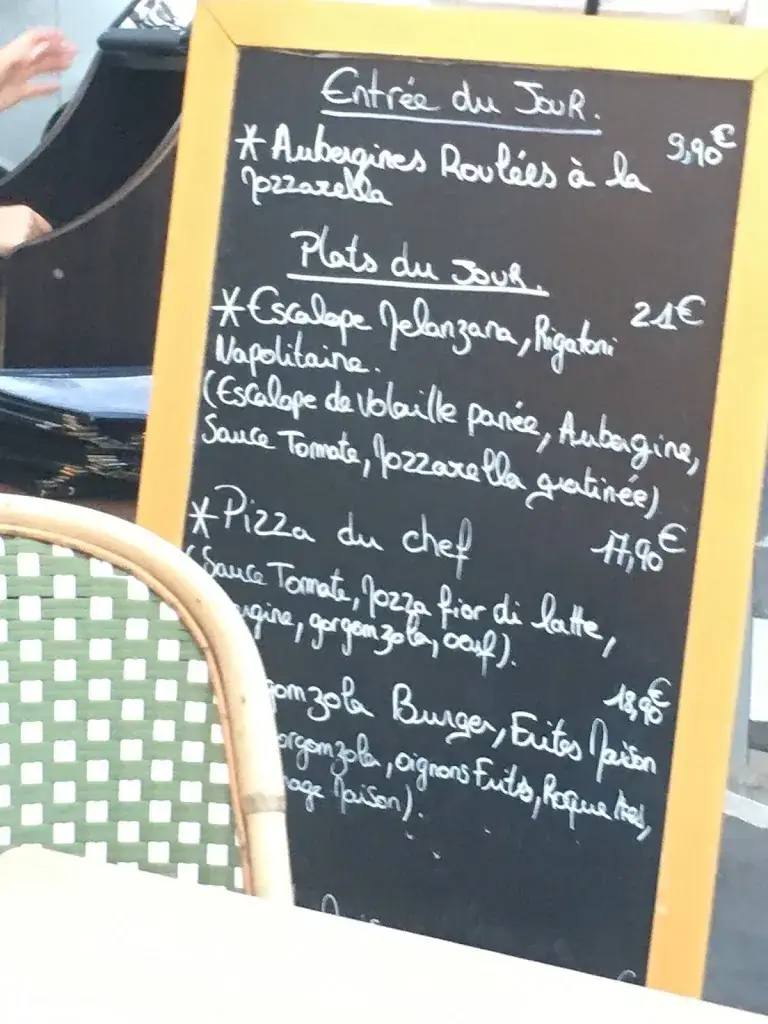 Entrée du Jour.
* Aubergines Roulées à la 9,90€
Mozzarella
Plats du Jour.
* Escalope Melanzana, Rigatoni 21€
Napolitaine.
(Escalope de Volaille panée, Aubergine,
Sauce Tomate, Mozzarella gratinée)
* Pizza du chef 17,90€
(Sauce Tomate, Mozza fior di latte,
gine, gorgonzola, oeuf).
gonzola Burger, Frites Maison 18,90€
orgonzola, oignons Frits, Roquette,
Maison).